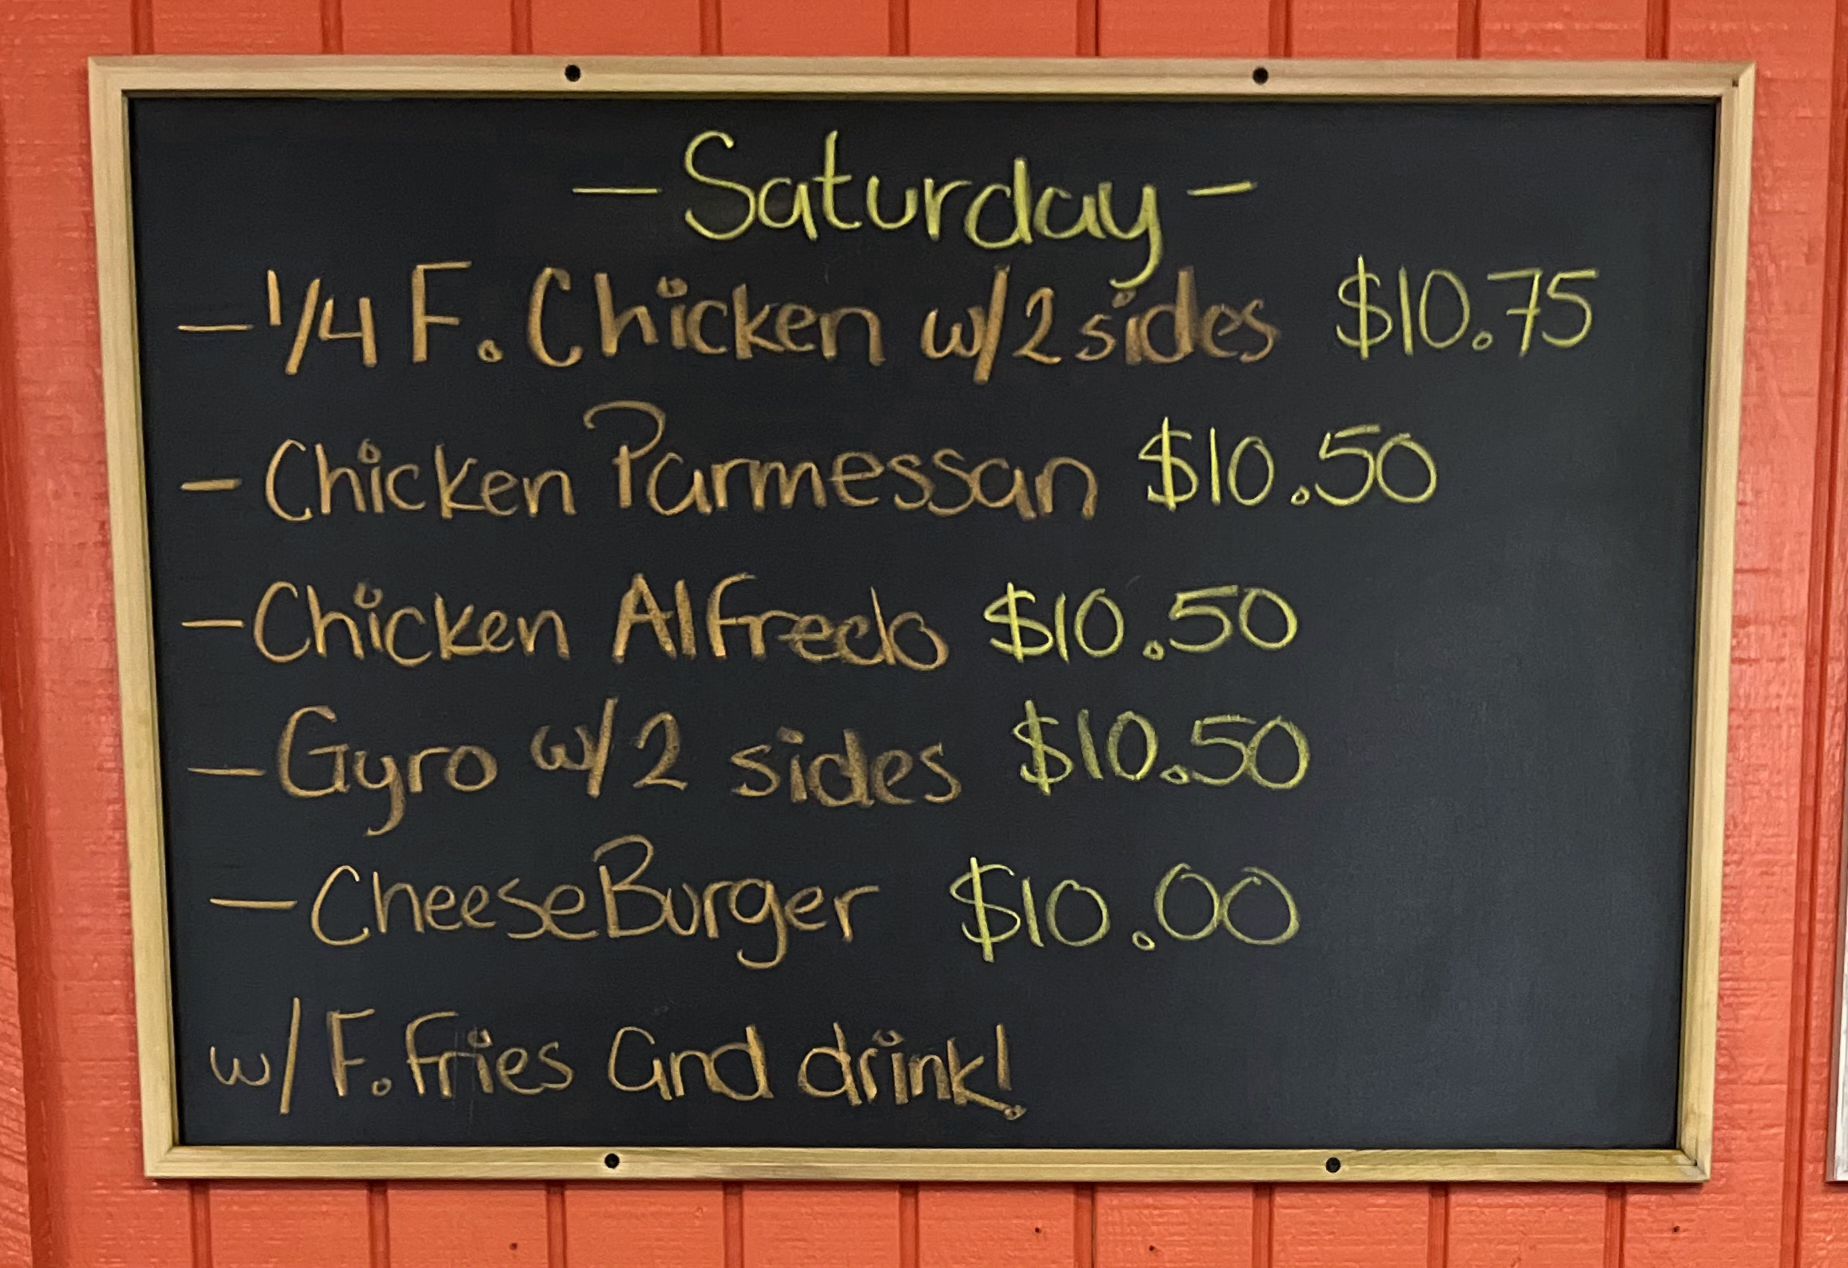 - Saturday -
- 1/4 F. Chicken w/2 sides $10.75
- Chicken Parmessan $10.50
- Chicken Alfredo $10.50
- Gyro w/2 sides $10.50
- CheeseBurger $10.00
w/ F. fries and drink!